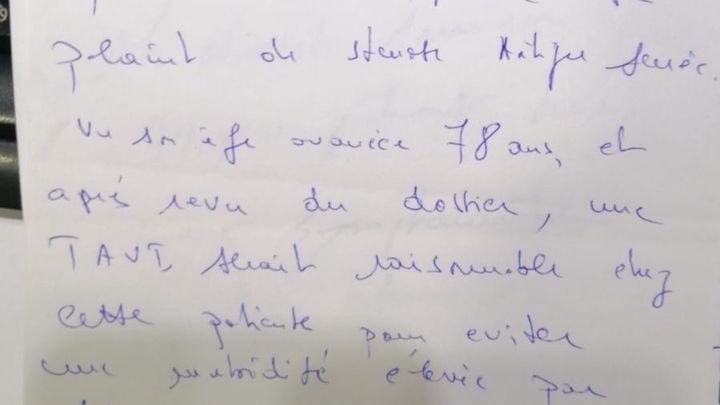 plaint de sténose Aortique serrée.
Vu son âge avancée 78 ans, et
après revu du dossier, une
TAVI, serait raisonnable chez
cette patiente pour eviter
une morbidité élevée par